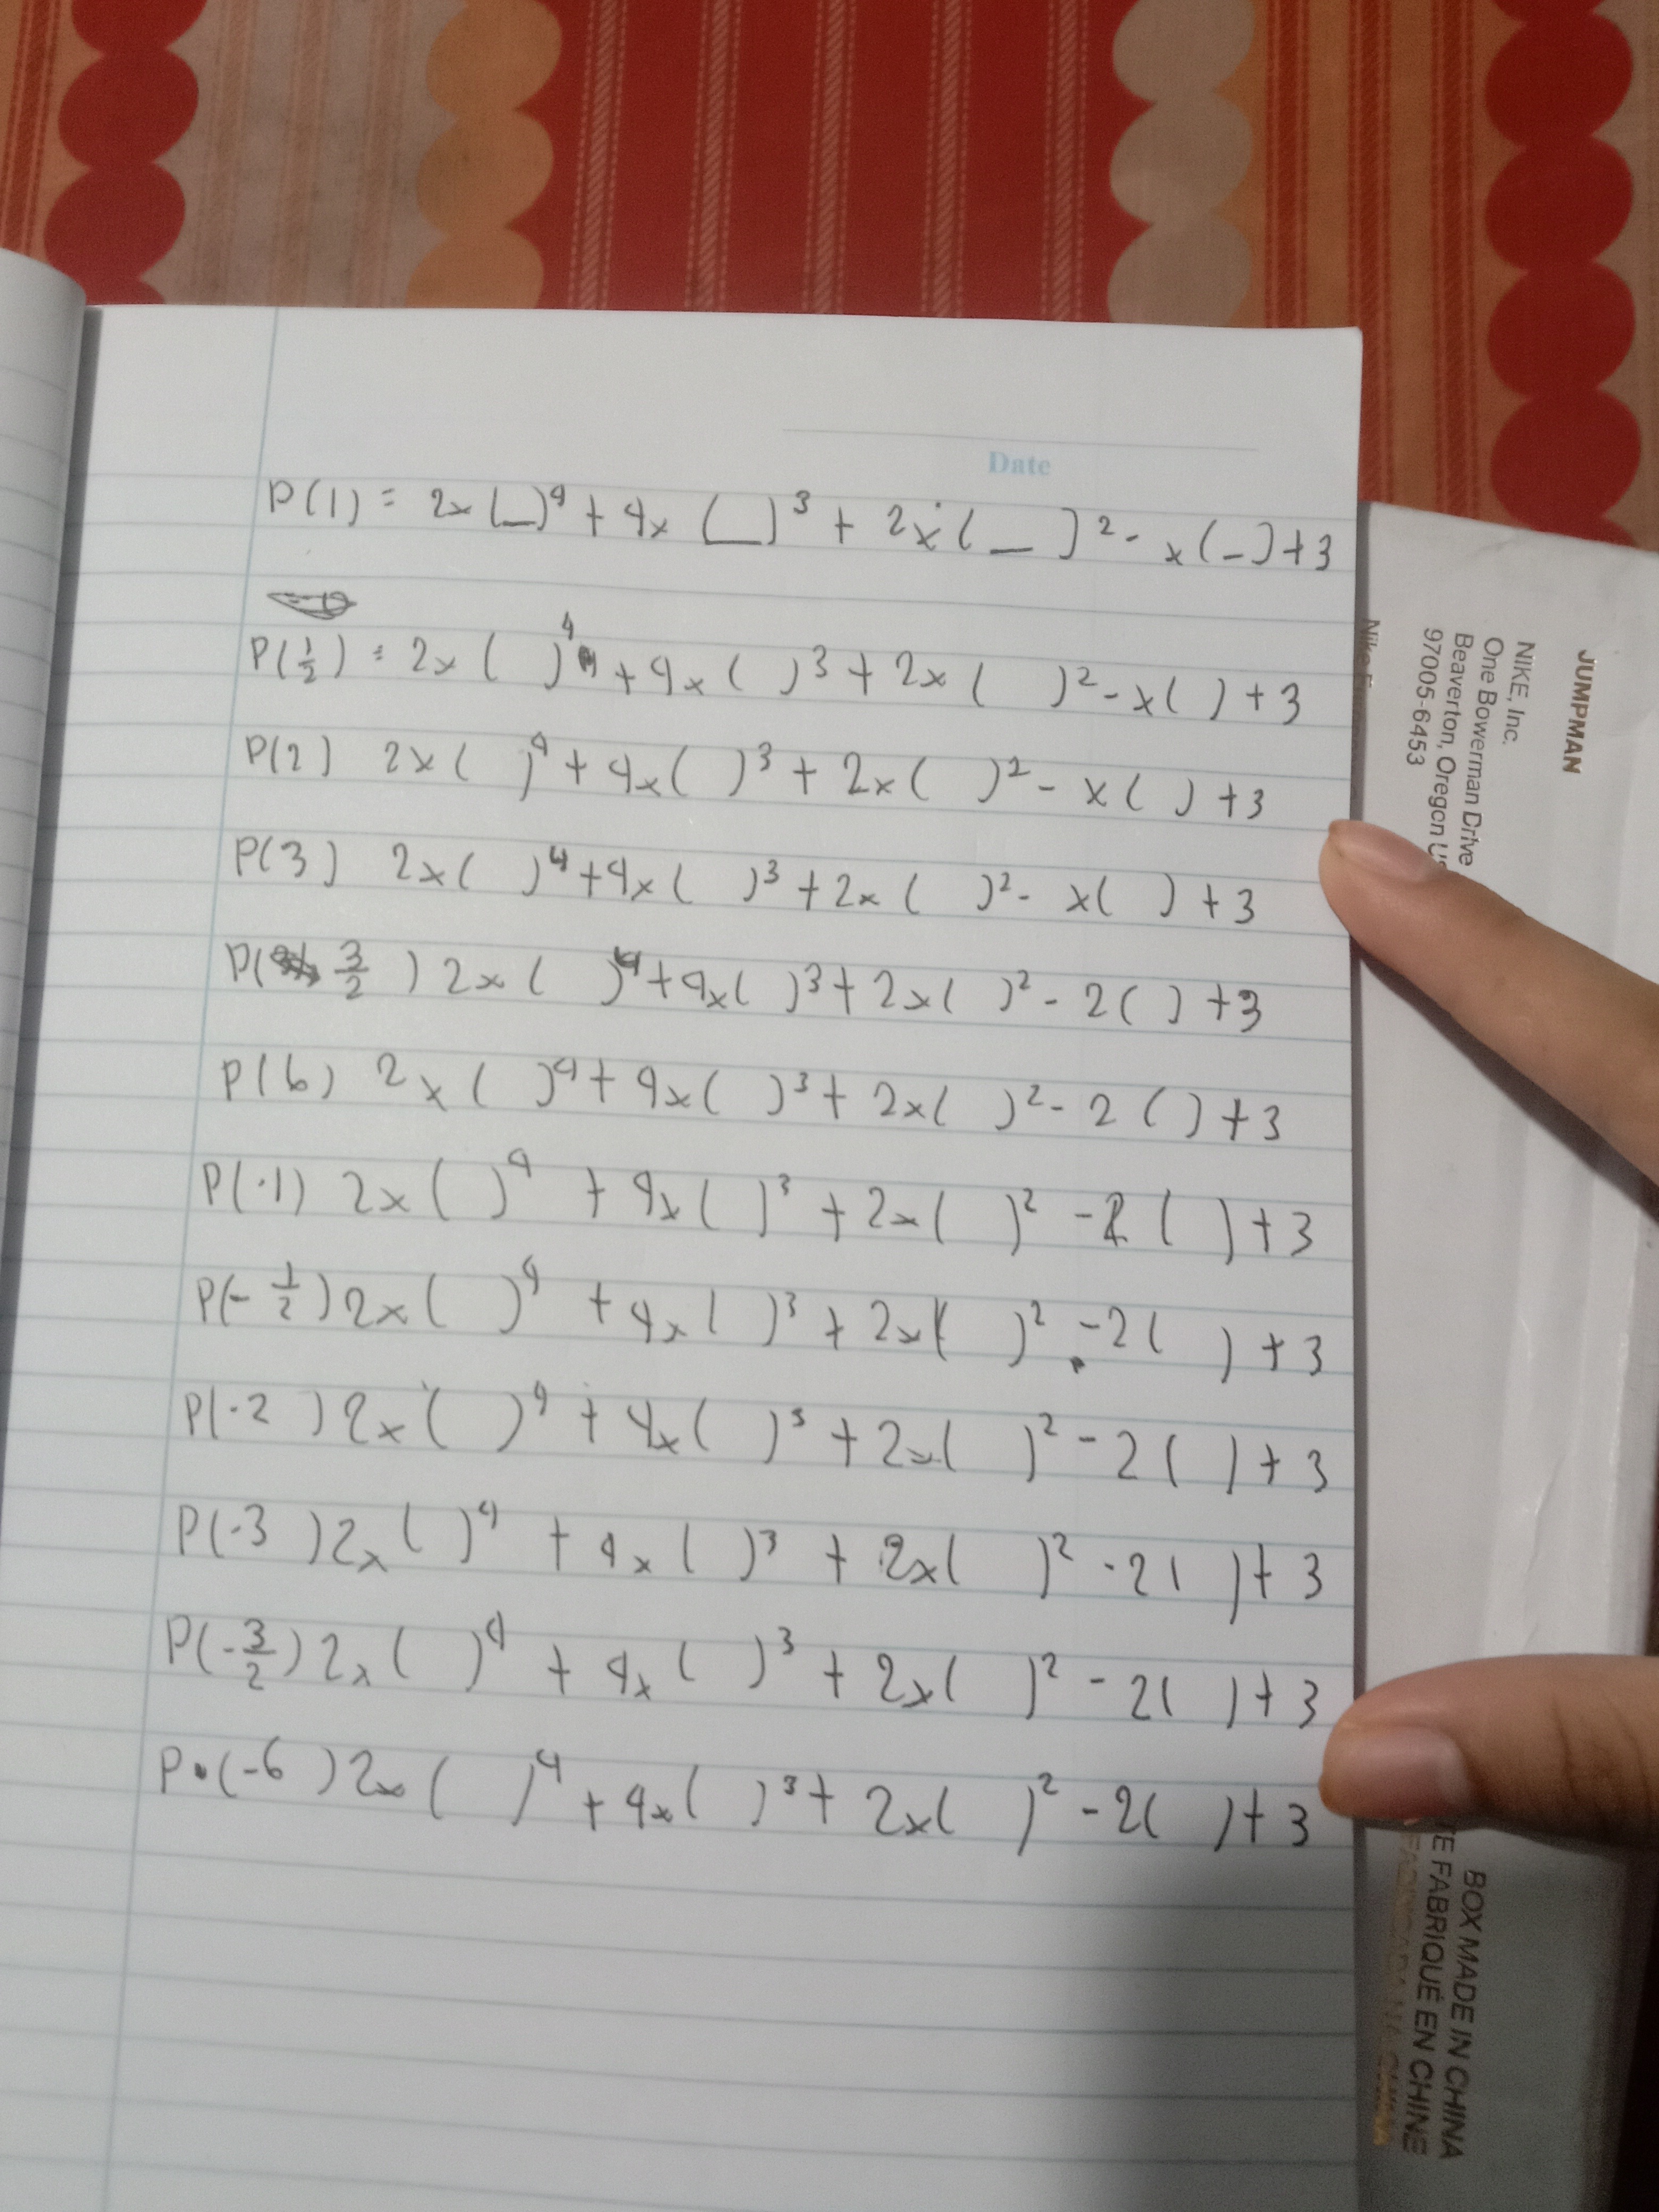 Date
P(1) = 2x(_)⁴ + 4x (_)³ + 2x(_)² - x(_) + 3
P(1/2) = 2x ( )⁴ + 4x ( )³ + 2x ( )² - x( ) + 3
P(2) 2x ( )⁴ + 4x( )³ + 2x ( )² - x ( ) + 3
P(3) 2x ( )⁴ + 4x ( )³ + 2x ( )² - x( ) + 3
P(3/2) 2x ( )⁴ + 4x( )³ + 2x( )² - 2( ) + 3
P(6) 2x ( )⁴ + 4x( )³ + 2x( )² - 2 ( ) + 3
P(-1) 2x ( )⁴ + 4x ( )³ + 2x( )² - 2 ( ) + 3
P(-1/2) 2x ( )⁴ + 4x ( )³ + 2x( )² - 2( ) + 3
P(-2) 2x ( )⁴ + 4x ( )³ + 2x( )² - 2( ) + 3
P(-3) 2x ( )⁴ + 4x ( )³ + 2x( )² - 2( ) + 3
P(-3/2) 2x ( )⁴ + 4x ( )³ + 2x( )² - 2( ) + 3
P(-6) 2x ( )⁴ + 4x( )³ + 2x( )² - 2( ) + 3
JUMPMAN
NIKE, Inc.
One Bowerman Drive
Beaverton, Oregon
97005-6453
Nike
BOX MADE IN CHINA
FABRIQUÉ EN CHINE